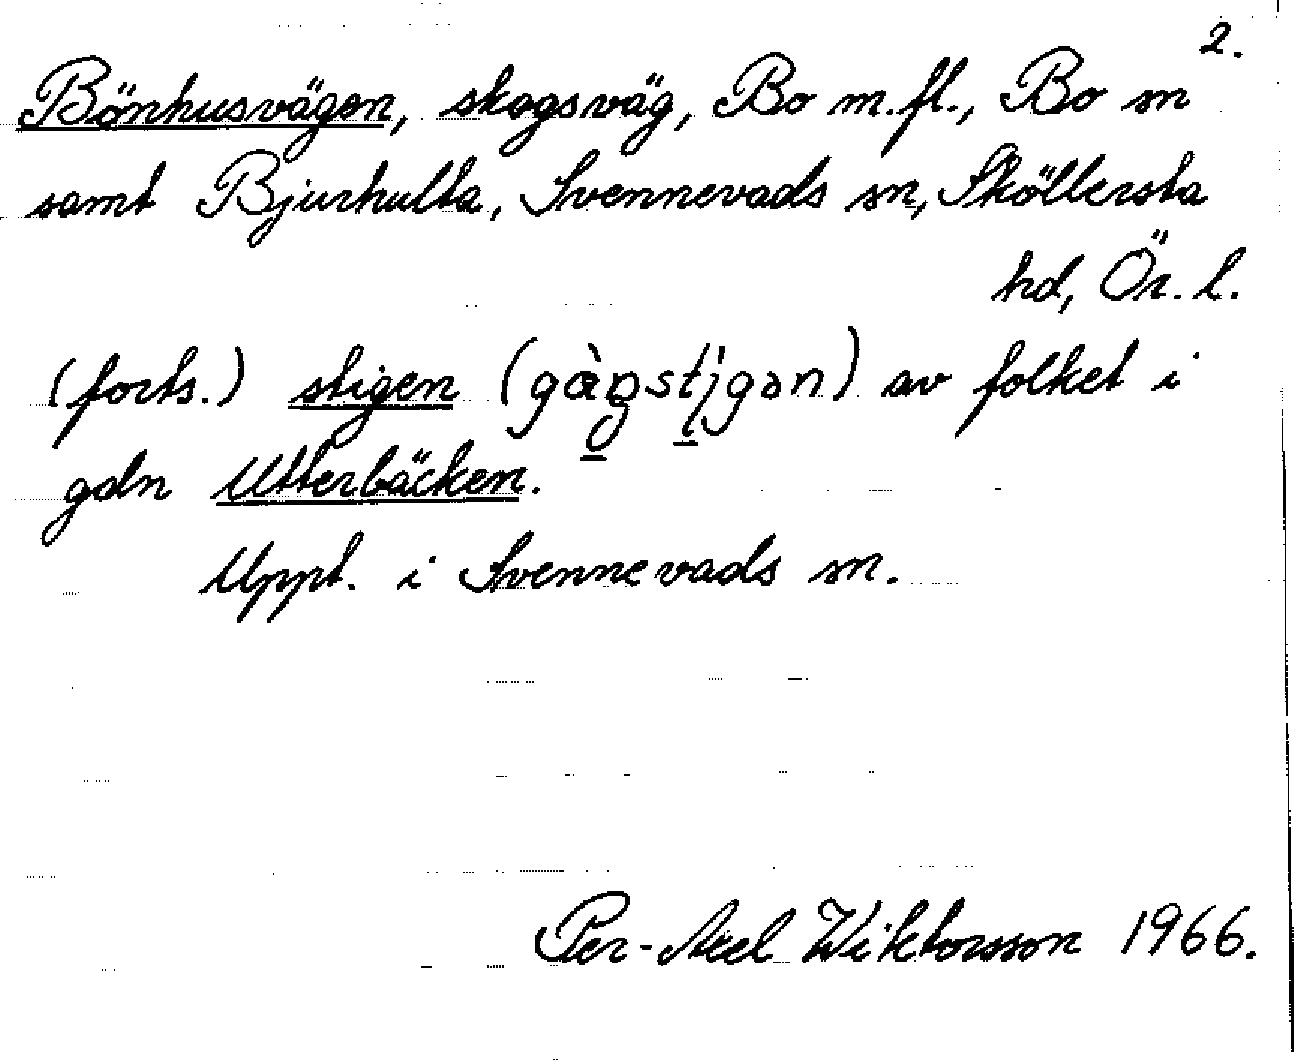 2.
Bönhusvägen, skogsväg, Bo m.fl., Bo sn
samt Bjurhulta, Svennevads sn, Sköllersta
hd, Ör. l.
(forts.) stigen (gàŋstįgən) av folket i
gdn Utterbäcken.
Uppt. i Svennevads sn.
Per-Axel Wiktorsson 1966.